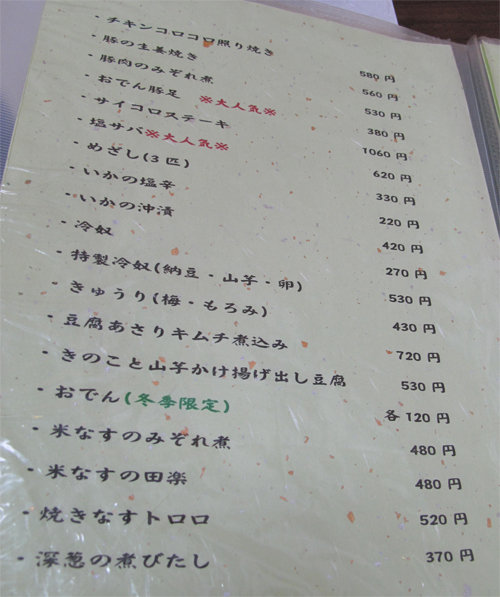 ・チキンコロコロ照り焼き 580円
・豚の生姜焼き 560円
・豚肉のみぞれ煮 530円
・おでん豚足 ※大人気※ 380円
・サイコロステーキ 1060円
・塩サバ※大人気※ 620円
・めざし(3匹) 330円
・いかの塩辛 220円
・いかの沖漬 420円
・冷奴 270円
・特製冷奴(納豆・山芋・卵) 530円
・きゅうり(梅・もろみ) 430円
・豆腐あさりキムチ煮込み 720円
・きのこと山芋かけ揚げ出し豆腐 530円
・おでん(冬季限定) 各120円
・米なすのみぞれ煮 480円
・米なすの田楽 480円
・焼きなすトロロ 520円
・深葱の煮びたし 370円